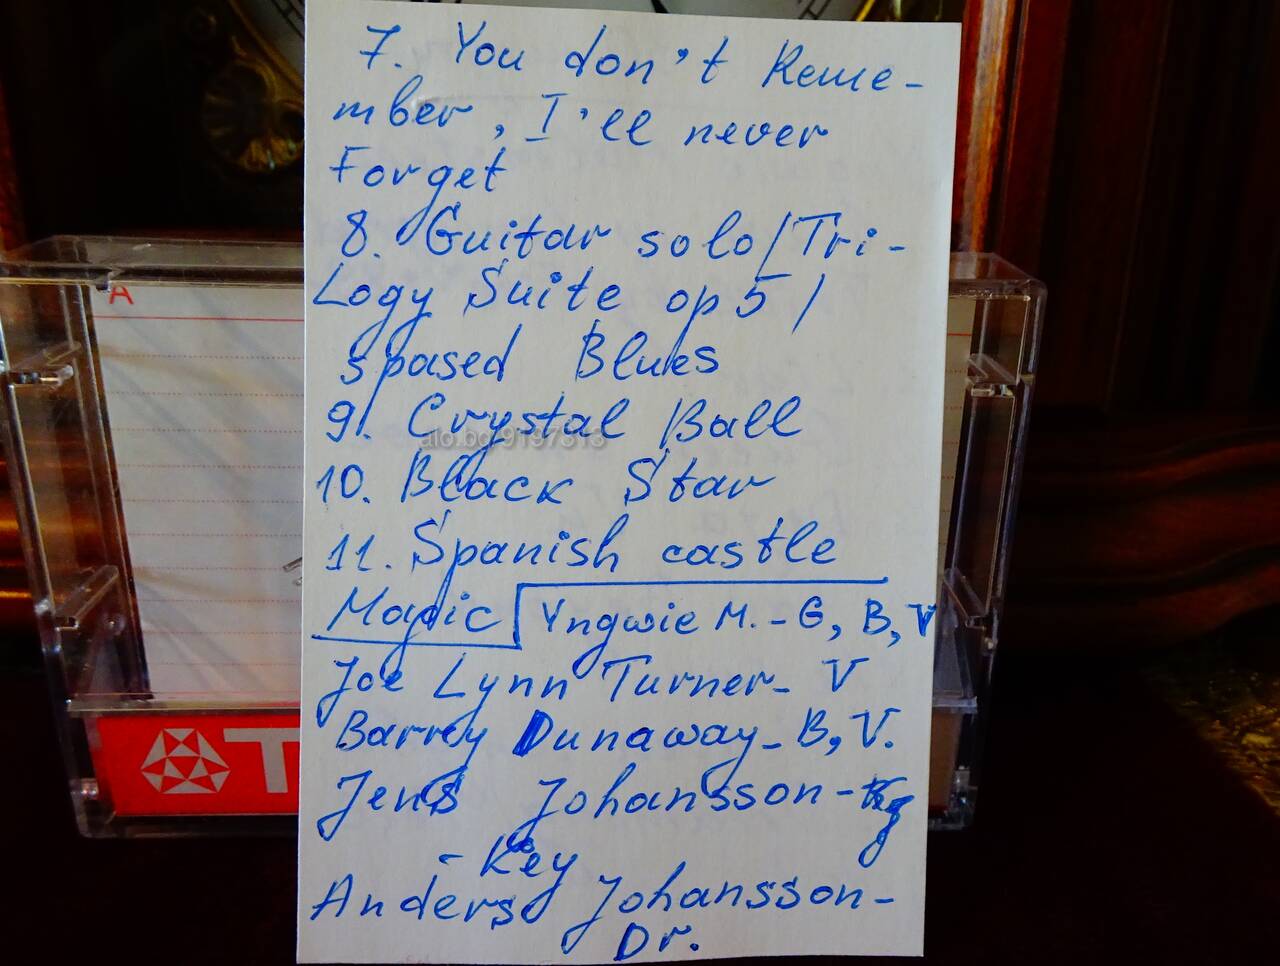 7. You don't Reme-
mber, I'll never
Forget
8. Guitar solo/Tri-
Logy Suite op 5/
spased Blues
9. Crystal Ball
alo.bg 9197313
10. Black Star
11. Spanish castle
Magic Yngwie M. - G, B, V
Joe Lynn Turner - V
Barry Dunaway - B, V.
Jens Johansson -
- Key
Anders Johansson -
Dr.
A
T